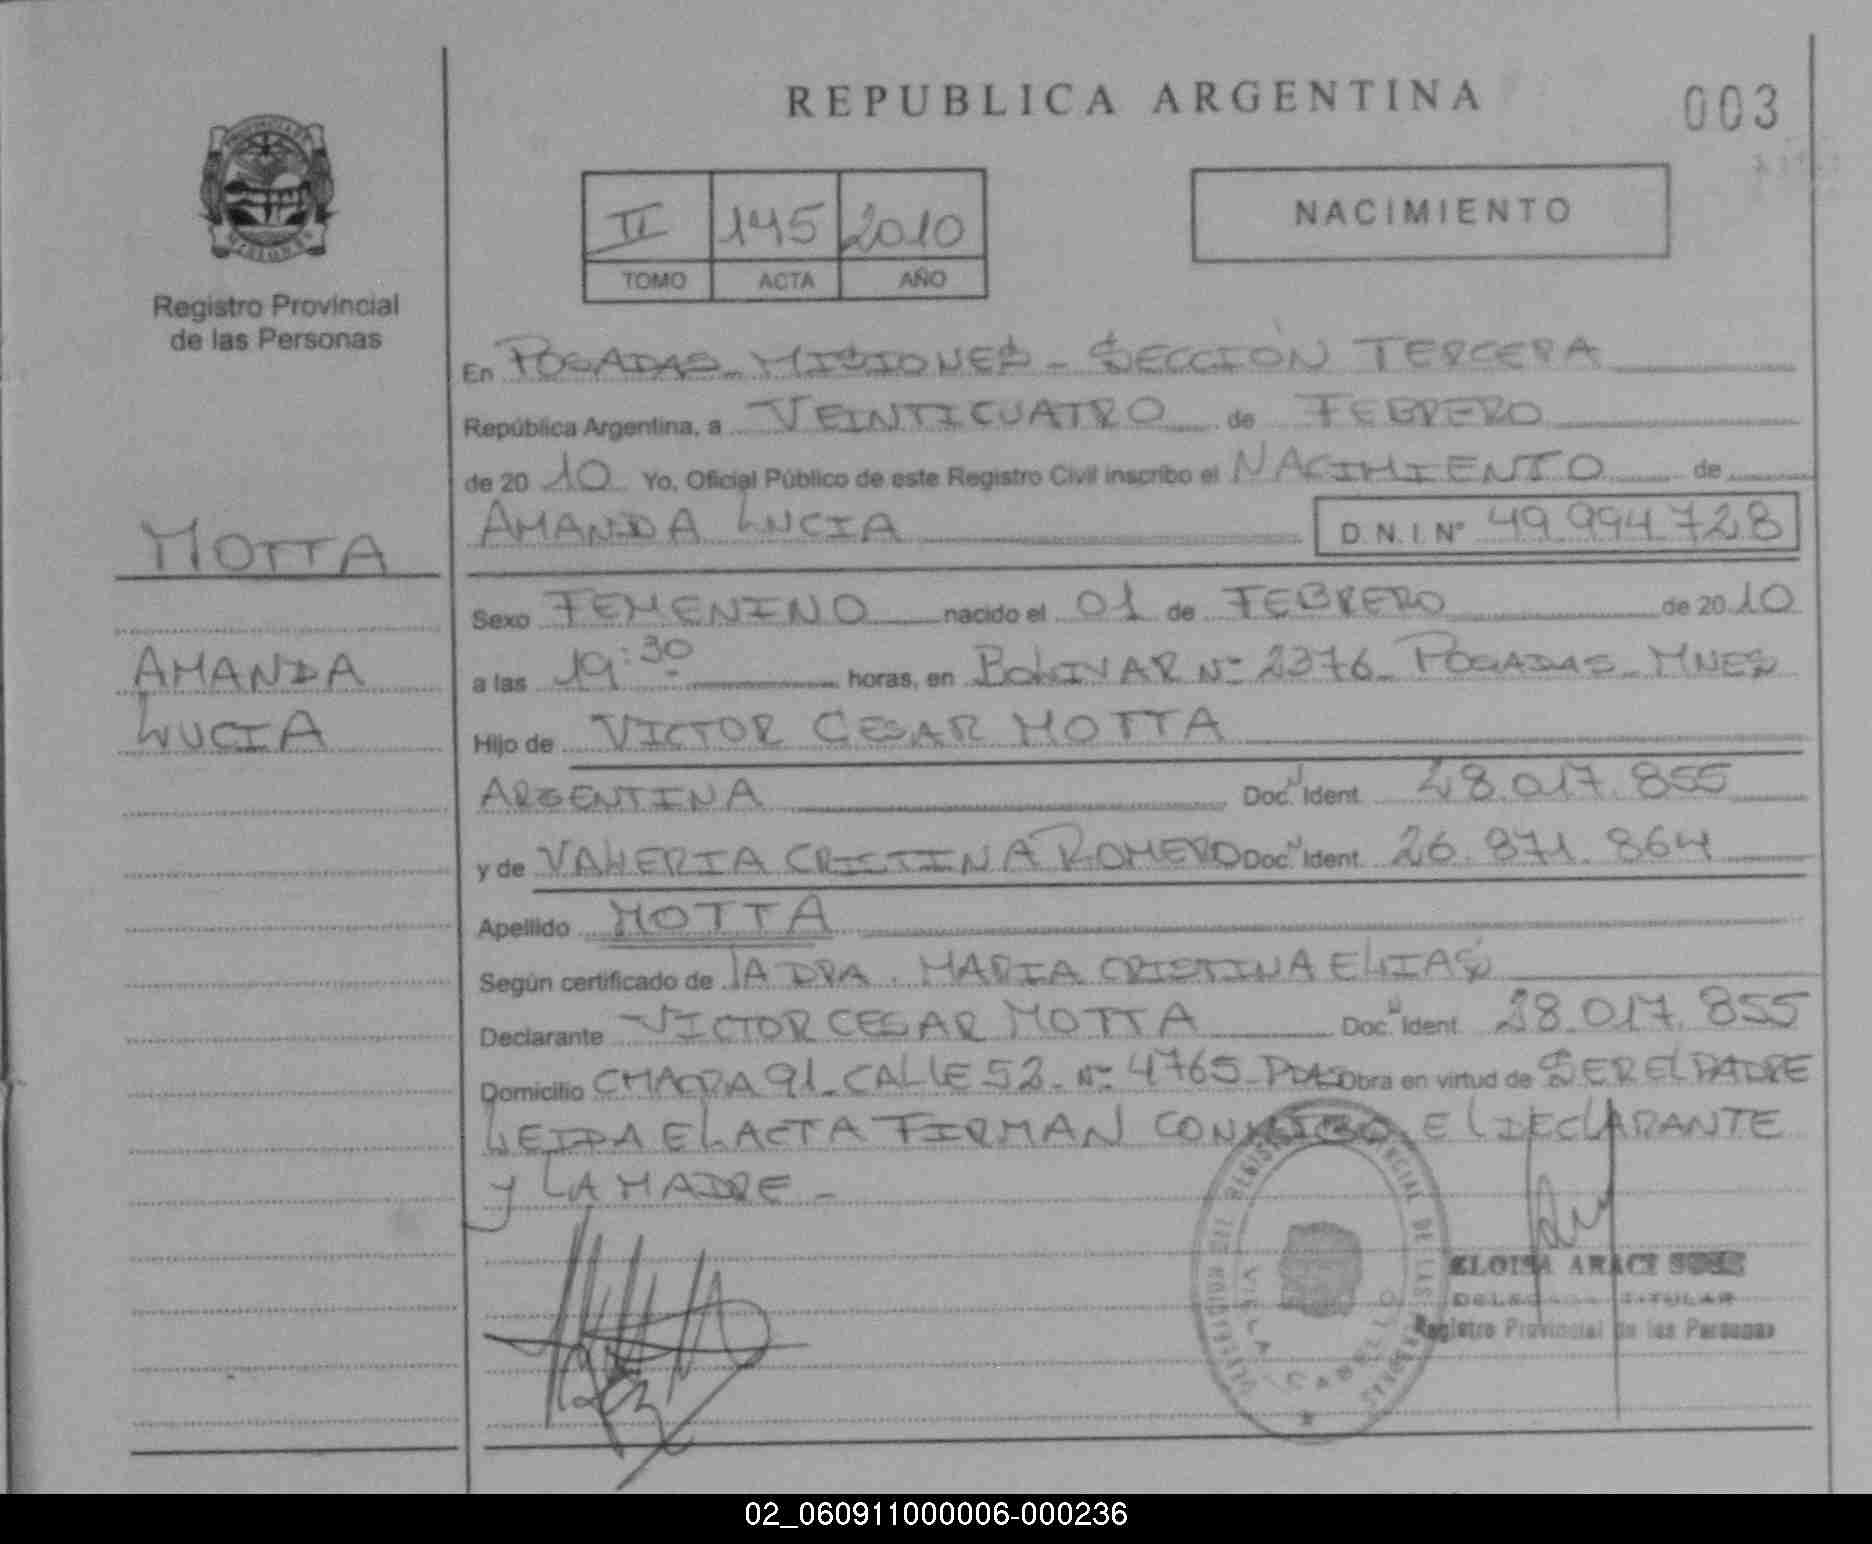 REPUBLICA ARGENTINA
003
II 145 2010
TOMO ACTA AÑO
NACIMIENTO
Registro Provincial
de las Personas
En POSADAS - MISIONES - SECCIÓN TERCERA
República Argentina, a VEINTICUATRO de FEBRERO
de 2010 Yo, Oficial Público de este Registro Civil inscribo el NACIMIENTO de
AMANDA LUCIA D.N.I. Nº 49 994 728
MOTTA
AMANDA
LUCIA
Sexo FEMENINO nacido el 01 de FEBRERO de 2010
a las 19:30 horas, en BOLIVAR Nº 2376 - POSADAS - MNES
Hijo de VICTOR CESAR MOTTA
ARGENTINA Doc. Ident. 28.017.855
y de VALERIA CRISTINA ROMERO Doc. Ident. 26.871.864
Apellido MOTTA
Según certificado de LA DRA. MARIA CRISTINA ELIAS
Declarante VICTOR CESAR MOTTA Doc. Ident. 28.017.855
Domicilio CHACRA 91 - CALLE 52 - Nº 4765 - PDAS Obra en virtud de SER EL PADRE
LEIDA EL ACTA FIRMAN CONMIGO EL DECLARANTE
y LA MADRE -
ELOISA ARACI
DELEGADA TITULAR
Registro Provincial de las Personas
VILLA CABELLO
02_060911000006-000236